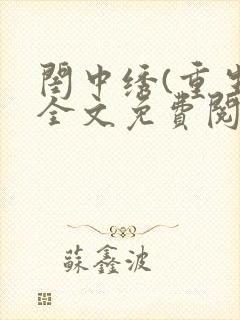 閨中绣(重生
全文免費閱
蘇鑫波